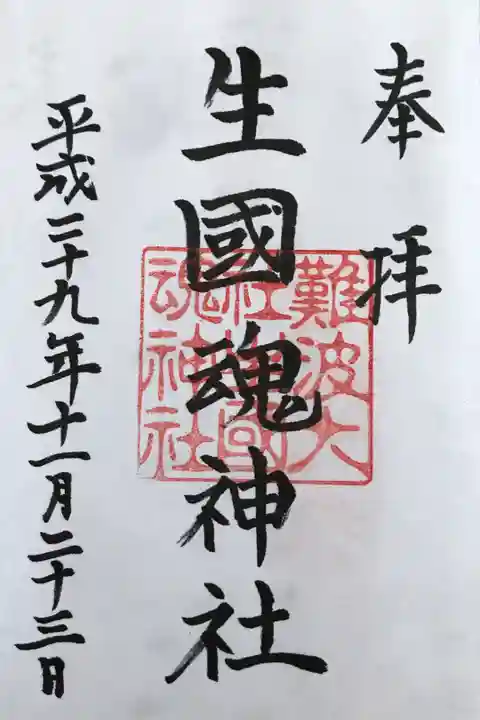 奉拝
生國魂神社
難波大
社生國
魂神社
平成二十九年十一月二十三日